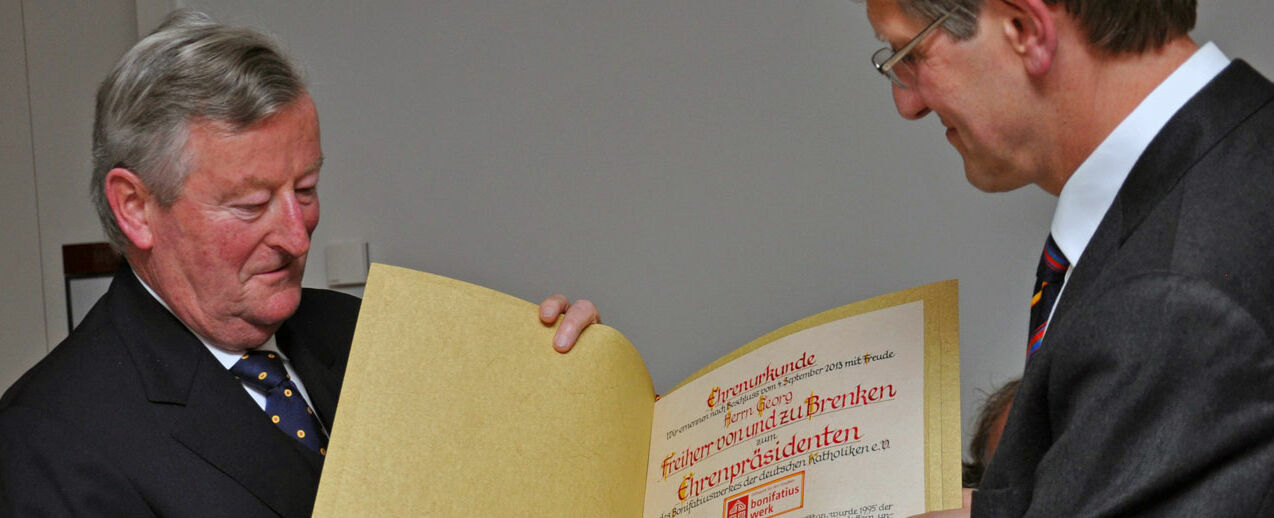 Ehrenurkunde
Wir ernennen nach Beschluss vom 4. September 2013 mit Freude
Herrn Georg
Freiherr von und zu Brenken
zum
Ehrenpräsidenten
des Bonifatiuswerkes der deutschen Katholiken e.V.
bonifatius
werk
wurde 1995 der